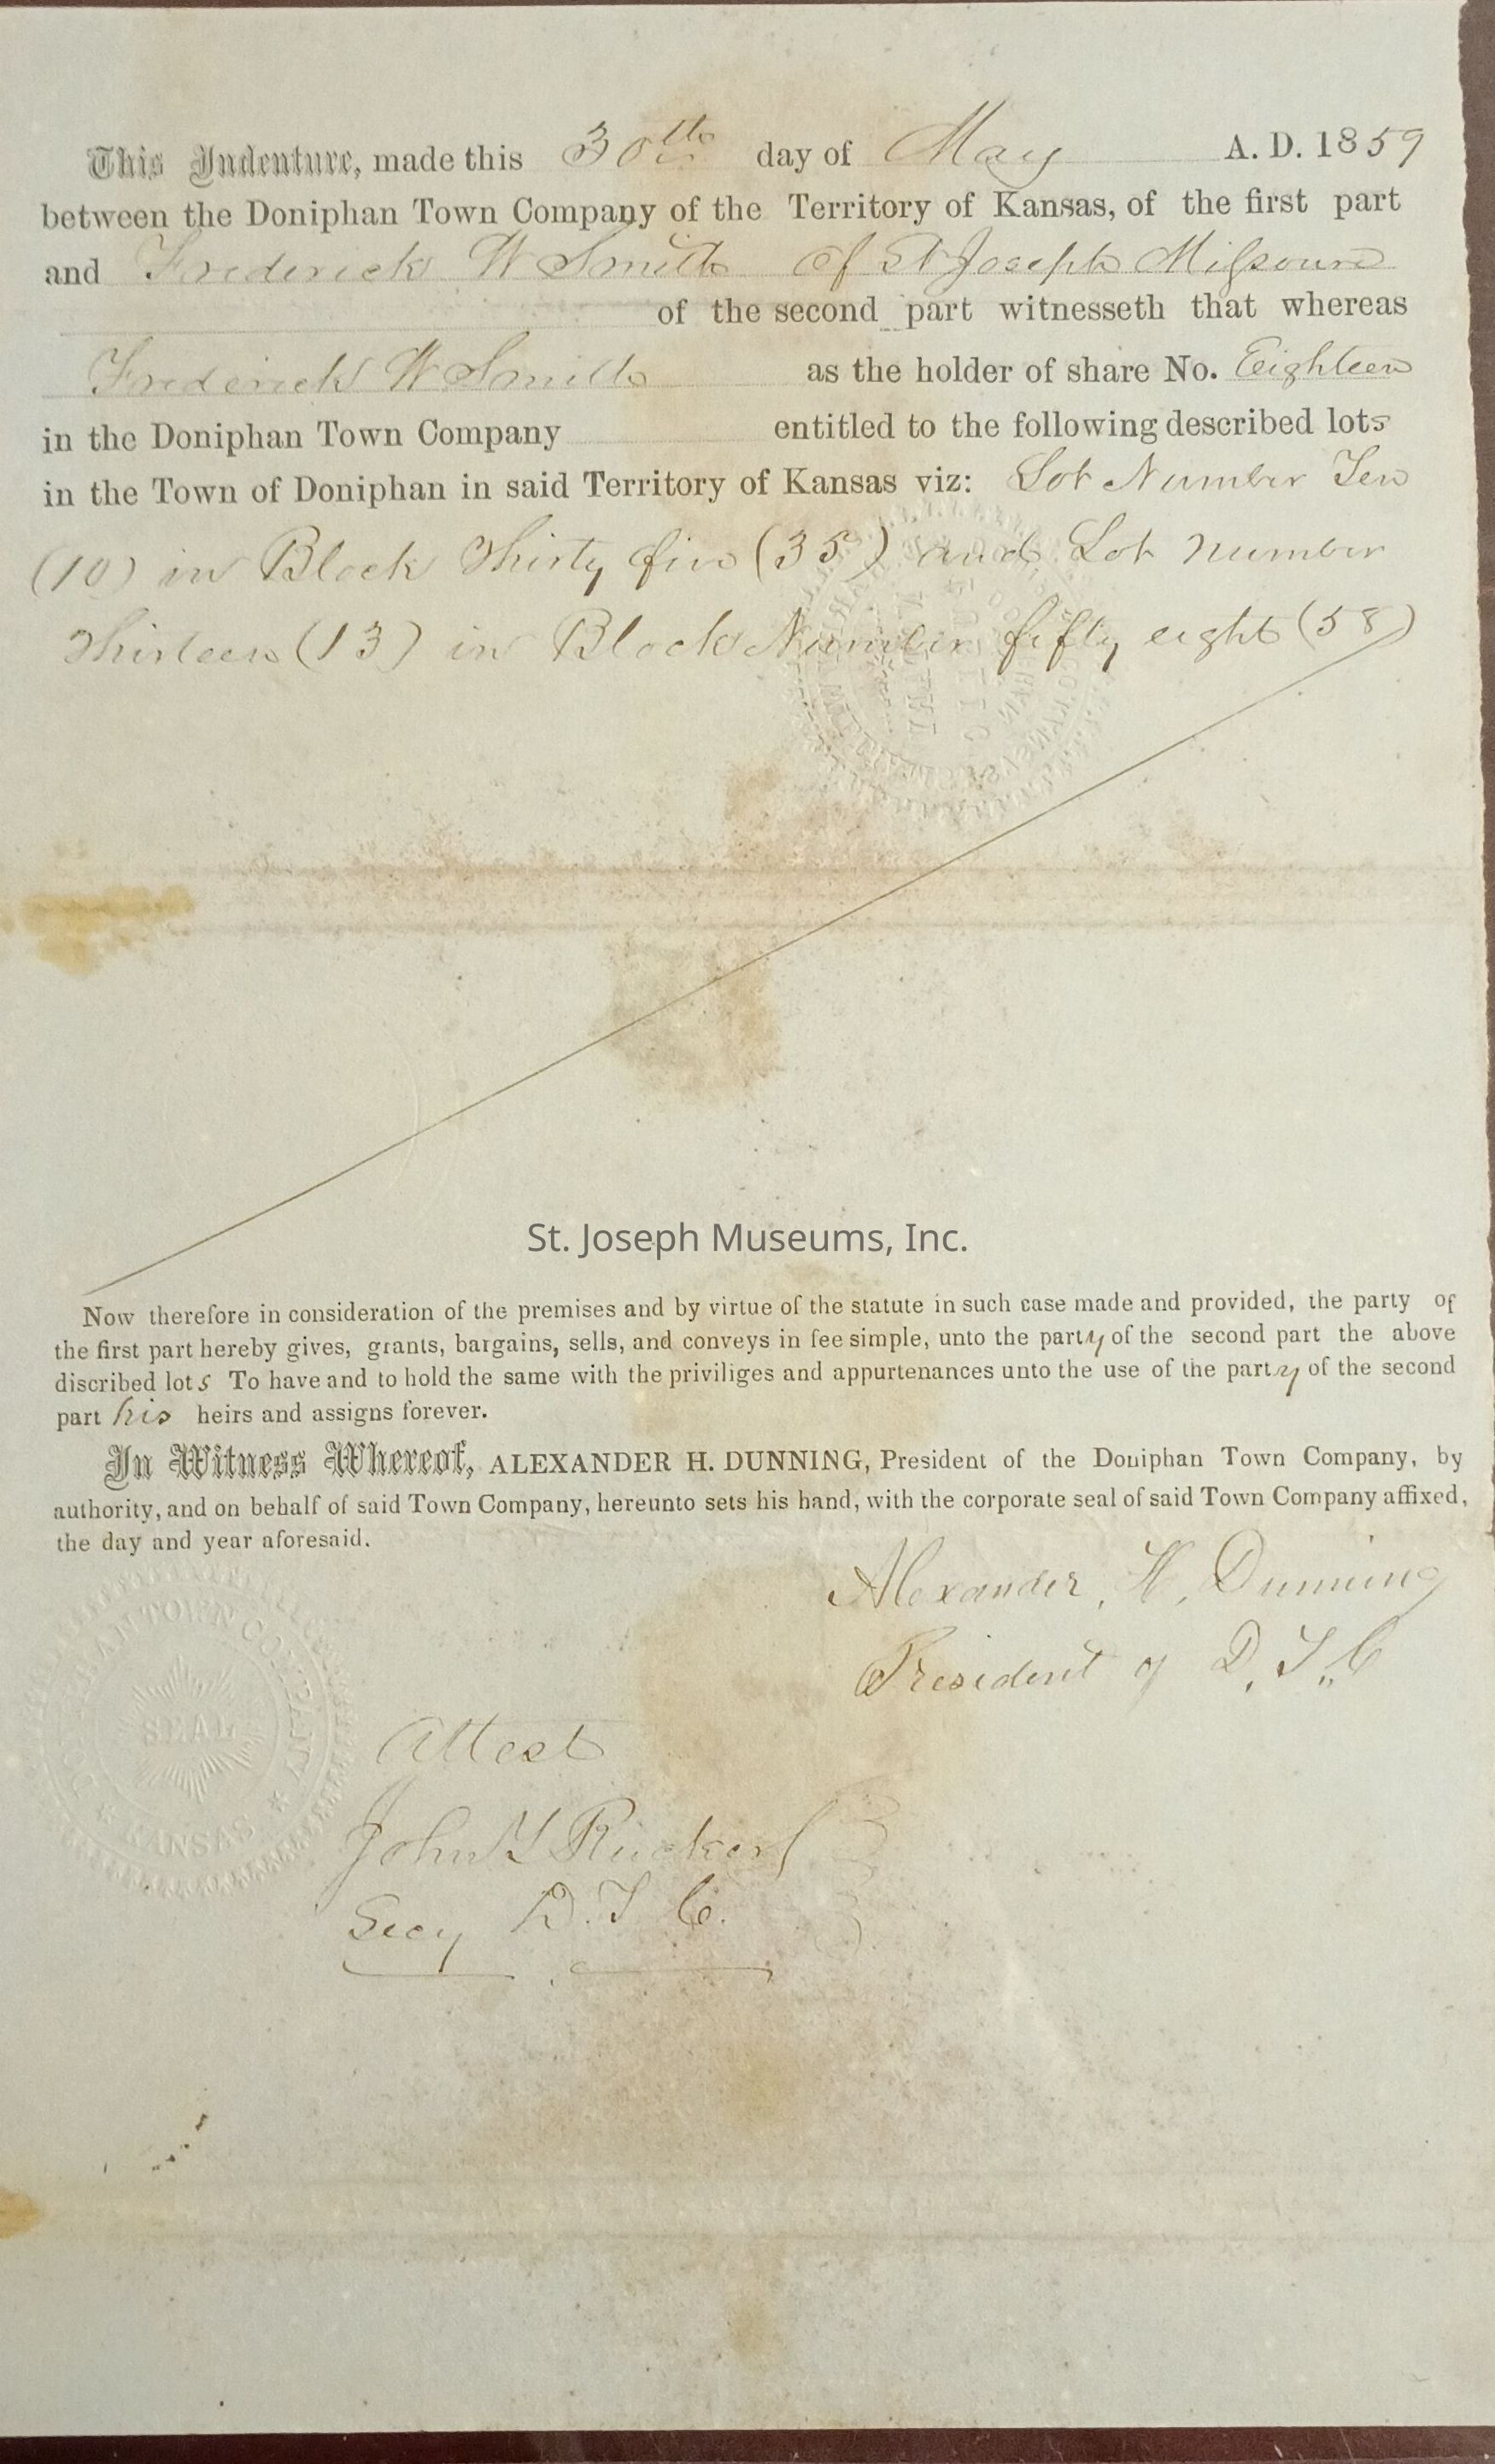 This Indenture, made this 30th day of May A. D. 1859
between the Doniphan Town Company of the Territory of Kansas, of the first part
and Frederick W Smith of St Joseph Missouri
of the second part witnesseth that whereas
Frederick W Smith as the holder of share No. Eighteen
in the Doniphan Town Company entitled to the following described lots
in the Town of Doniphan in said Territory of Kansas viz: Lot Number Ten
(10) in Block Thirty five (35) and Lot Number
Thirteen (13) in Block Number fifty eight (58)
St. Joseph Museums, Inc.
Now therefore in consideration of the premises and by virtue of the statute in such case made and provided, the party of
the first part hereby gives, grants, bargains, sells, and conveys in fee simple, unto the party of the second part the above
discribed lots To have and to hold the same with the priviliges and appurtenances unto the use of the party of the second
part his heirs and assigns forever.
In Witness Whereof, ALEXANDER H. DUNNING, President of the Doniphan Town Company, by
authority, and on behalf of said Town Company, hereunto sets his hand, with the corporate seal of said Town Company affixed,
the day and year aforesaid.
Alexander, H, Dunning
President of D, T,, C
DONIPHAN TOWN COMPANY
SEAL
* KANSAS *
Attest
John Y Rucker
Secy D. T C.